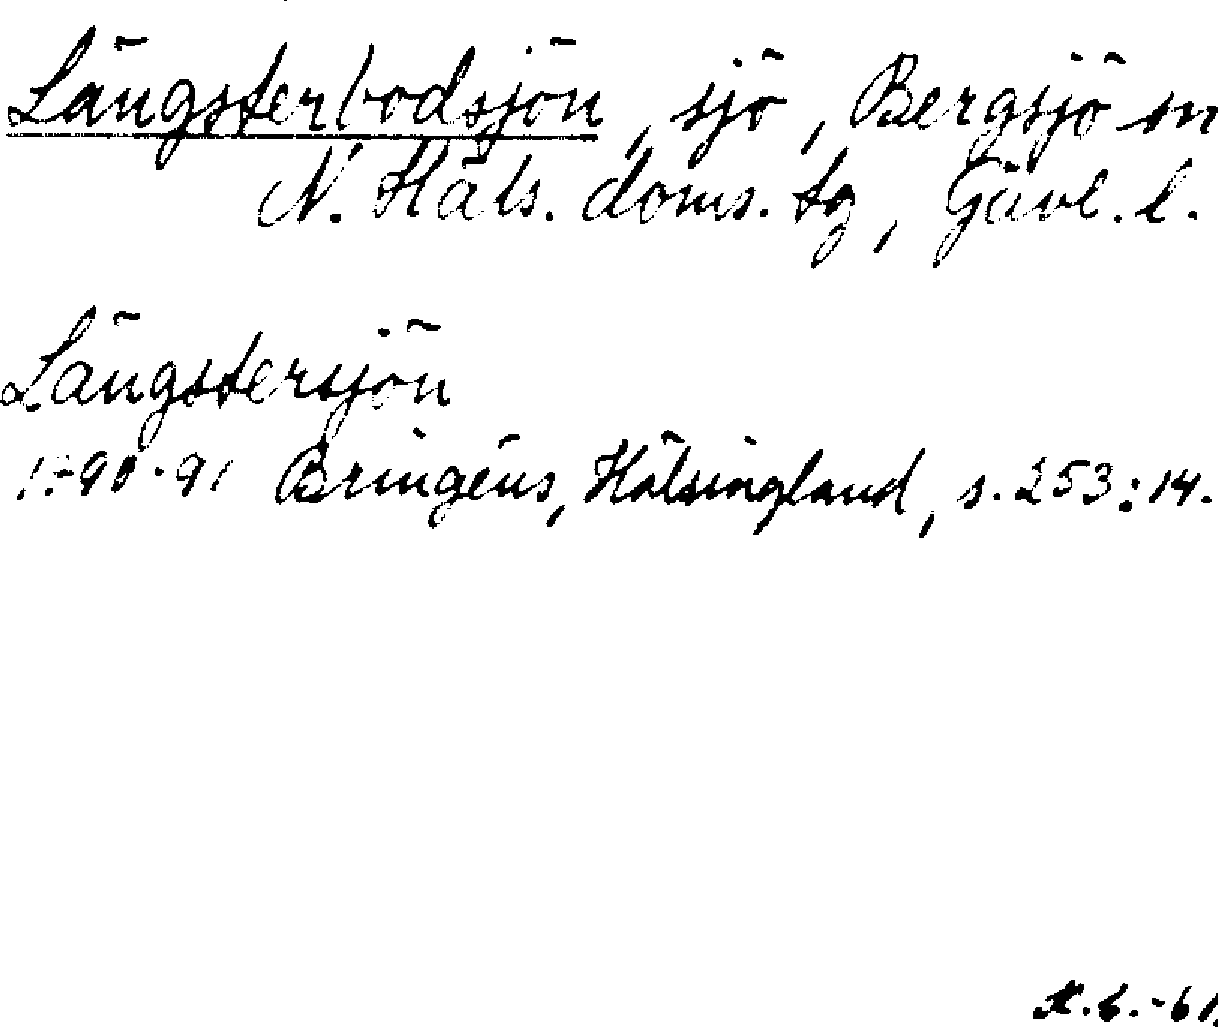 Längsterbodsjön, sjö, Bergsjö sn
N. Häls. doms. tg, Gävl. l.
Längstersjön
1790-91 Bringéus, Hälsingland, s. 253:14.
K.G.-61.